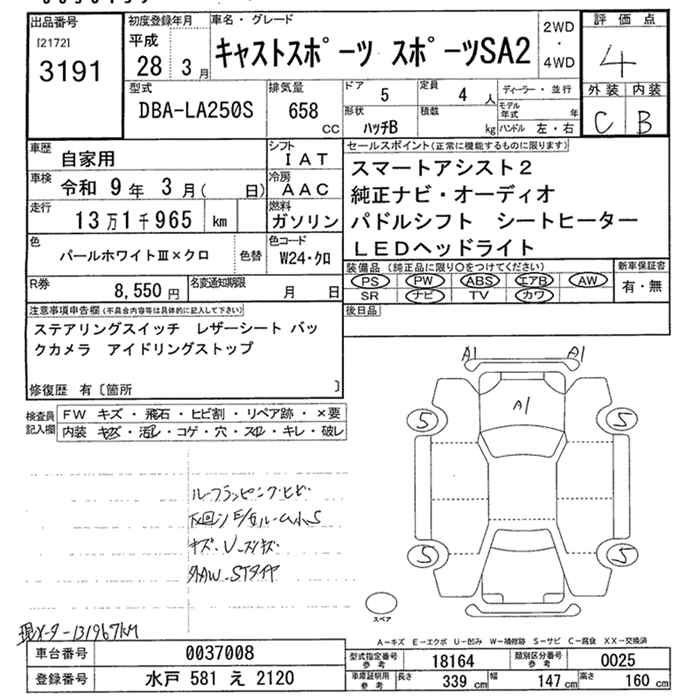 出品番号
[2172]
3191
初度登録年月
平成
28 3月
車名・グレード
キャストスポーツ スポーツSA2
2WD
・
4WD
評価点
4
外装 内装
C B
型式
DBA-LA250S
排気量
658
CC
ドア 5
定員 4 人
ディーラー・並行
形状 ハッチB
積載 kg
モデル年式 年
ハンドル 左・右
車歴 自家用
シフト IAT
車検 令和 9年 3月( 日)
冷房 AAC
走行 13万1千965 km
燃料 ガソリン
色 パールホワイトⅢ×クロ
色替
色コード W24・クロ
R券 8,550円
名変通知期限 月 日
セールスポイント(正常に機能するものに限ります)
スマートアシスト2
純正ナビ・オーディオ
パドルシフト シートヒーター
LEDヘッドライト
装備品(純正品に限り○をつけてください)
PS PW ABS エアB AW
SR ナビ TV カワ
新車保証書
有・無
後日品
注意事項申告欄(不具合内容等は具体的に記入して下さい)
ステアリングスイッチ レザーシート バッ
クカメラ アイドリングストップ
修復歴 有〔箇所 〕
検査員
記入欄
FW キズ・飛石・ヒビ割・リペア跡・×要
内装 キズ・汚レ・コゲ・穴・スレ・キレ・破レ
A1 A1
A1
S S
S S
スペア
ルーフラッピング・ヒビ
キズ・U・スキズ
外AW・STタイヤ
現メーター131967KM
A-キズ E-エクボ U-凹み W-補修跡 S-サビ C-腐食 XX-交換済
車台番号 0037008
登録番号 水戸 581 え 2120
型式指定番号 参考 18164
類別区分番号 参考 0025
車庫証明用 参考 長さ 339 cm 幅 147 cm 高さ 160 cm